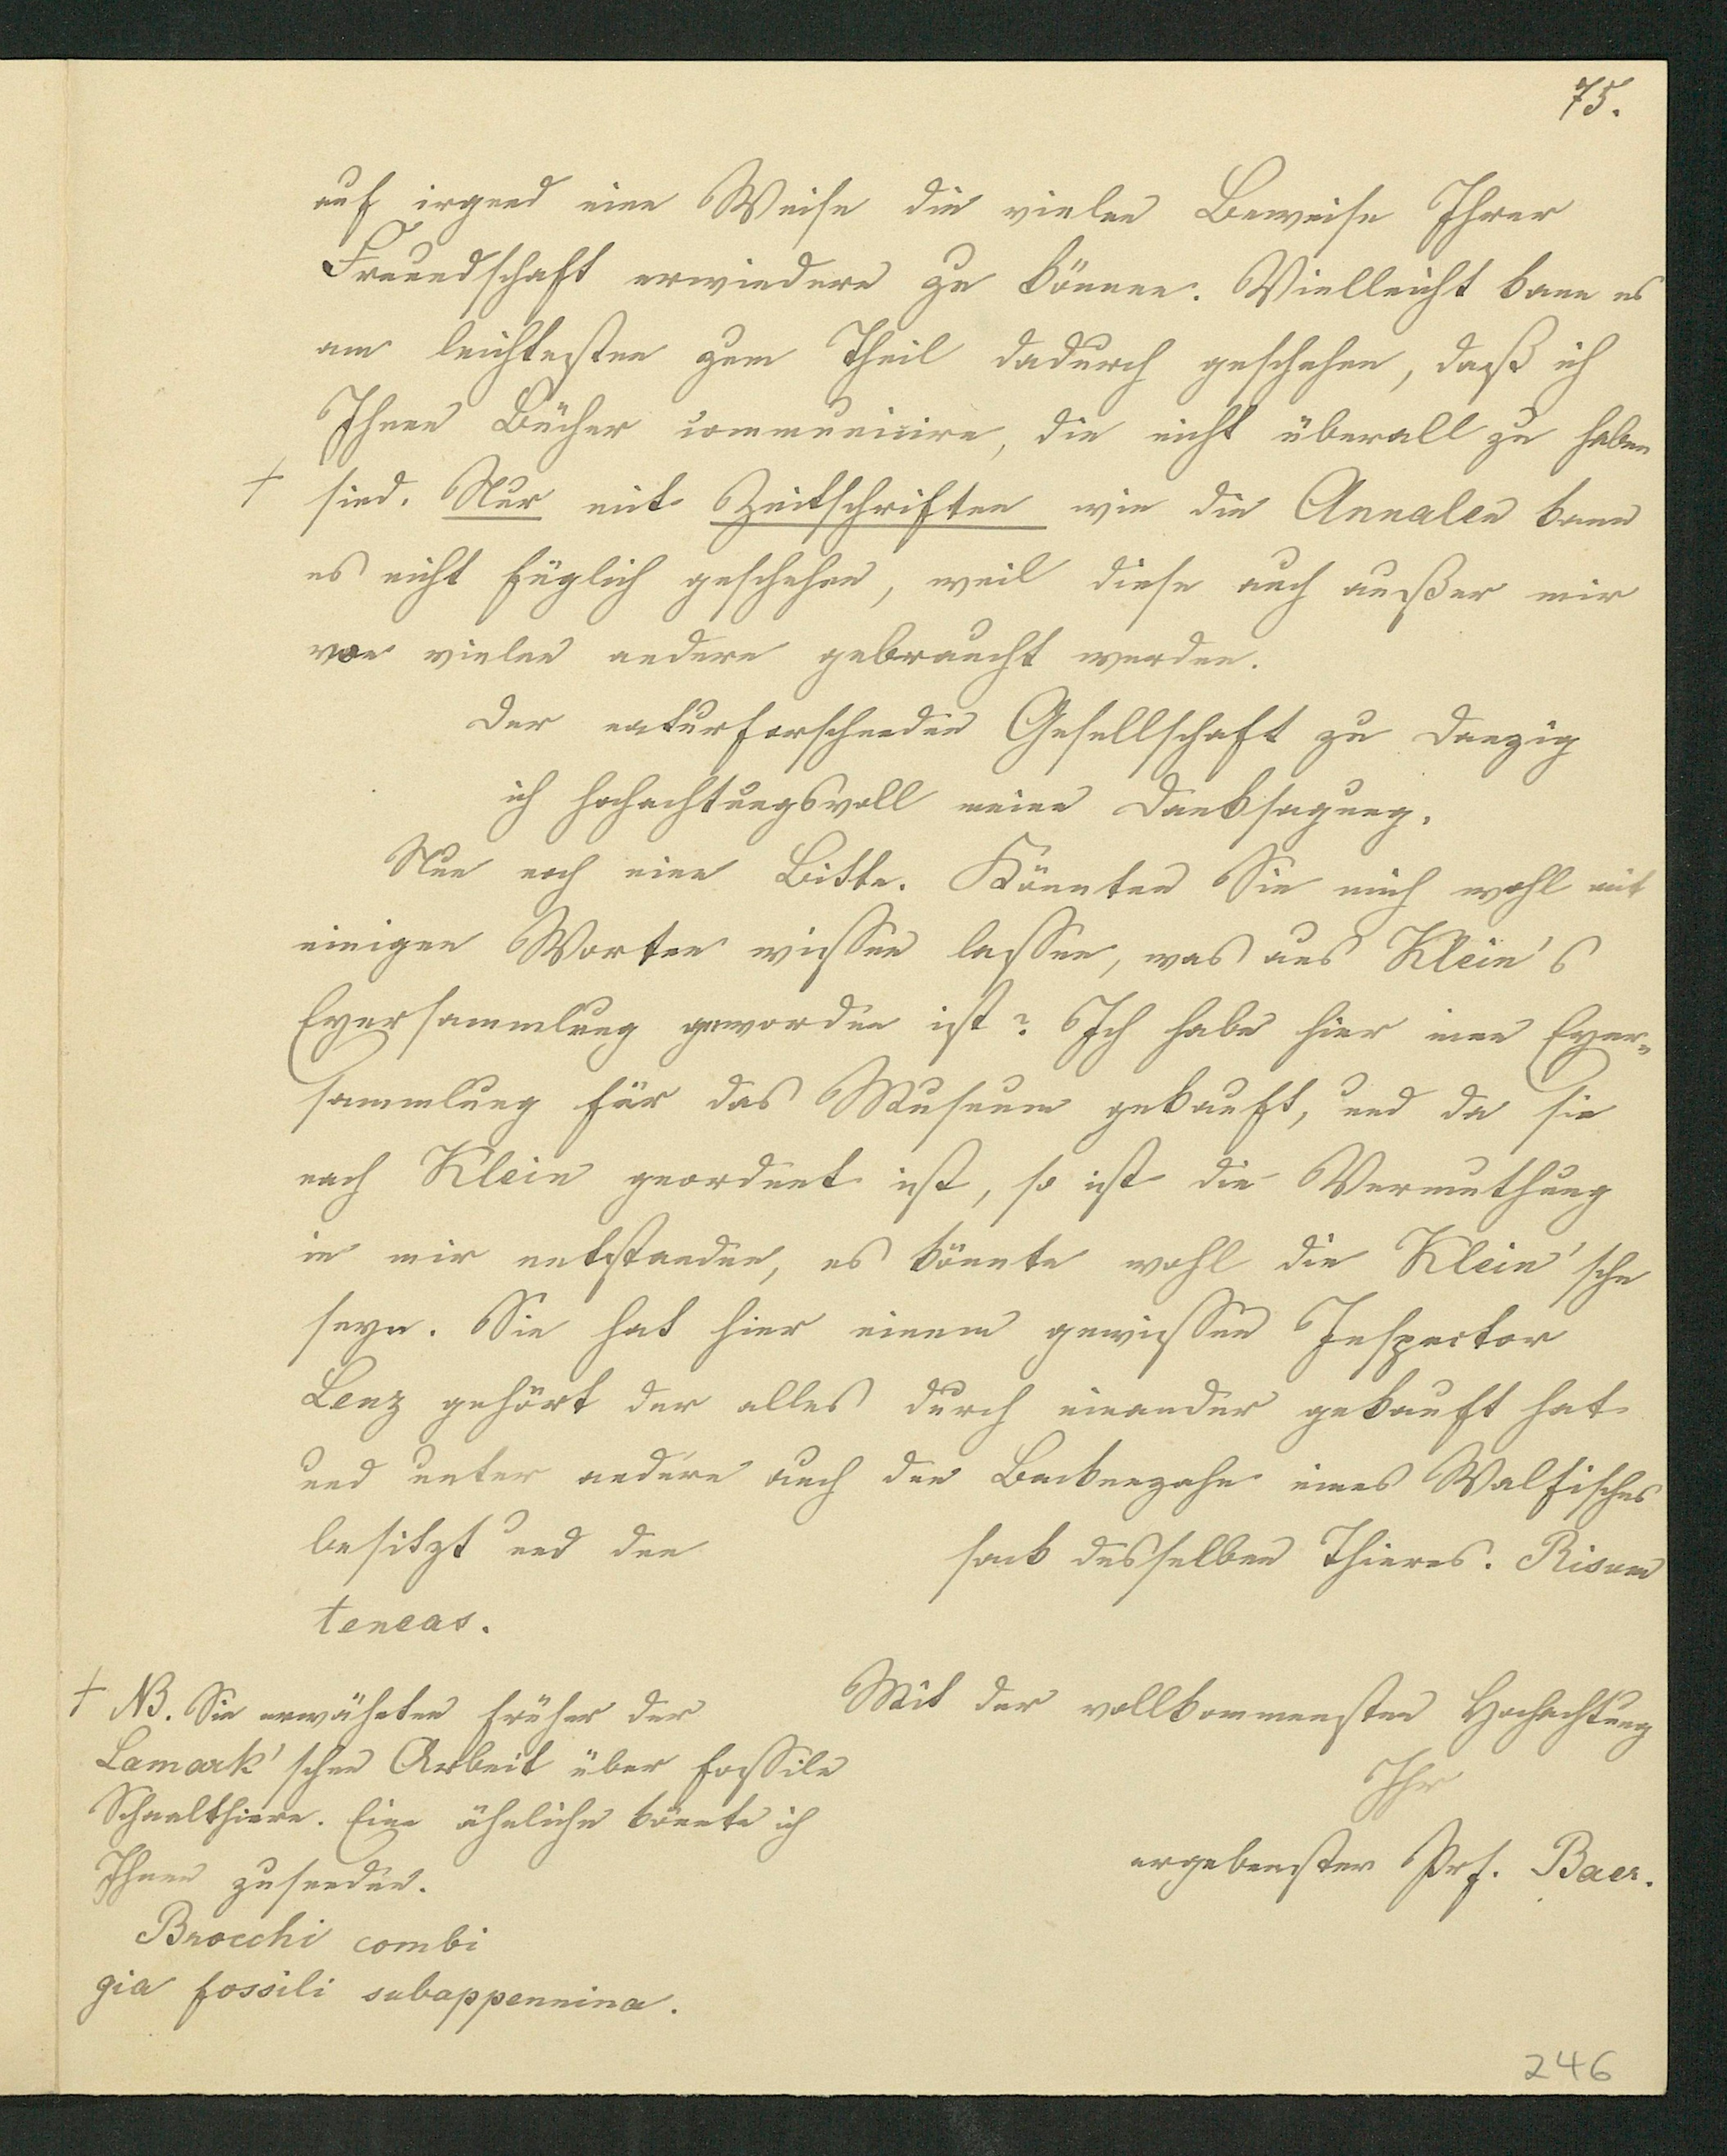 75.
auf irgend eine Weise die vielen Beweise Ihrer
Freundschaft erwiedern zu können. Vielleicht kann es
am leichtesten zum Theil dadurch geschehen, daß ich
Ihnen Bücher communicire, die nicht überall zu haben
+ sind. Nur mit Zeitschriften wie die Annalen kann
es nicht füglich geschehen, weil diese auch außer mir
von vielen andern gebraucht werden.
Der naturforschenden Gesellschaft zu Danzig
ich hochachtungsvoll meine Danksagung.
Nun noch eine Bitte. Könnten Sie mich wohl mit
einigen Worten wissen lassen, was aus Klein's
Eyersammlung geworden ist? Ich habe hier eine Eyer-
sammlung für das Museum gekauft, und da sie
nach Klein geordnet ist, so ist die Vermuthung
in mir entstanden, es könnte wohl die Klein'sche
seyn. Sie hat hier einem gewissen Inspector
Lenz gehört der alles durch einander gekauft hat
und unter andern auch den Backenzahn eines Walfisches
besitzt und den sack desselben Thieres. Risum
teneas.
Mit der vollkommensten Hochachtung
Ihr
ergebenster Prf. Baer.
+ NB. Sie erwähnten früher der
Lamark'schen Arbeit über fossile
Schaalthiere. Eine ähnliche könnte ich
Ihnen zusenden.
Brocchi combi
gia fossili subappennina.
246